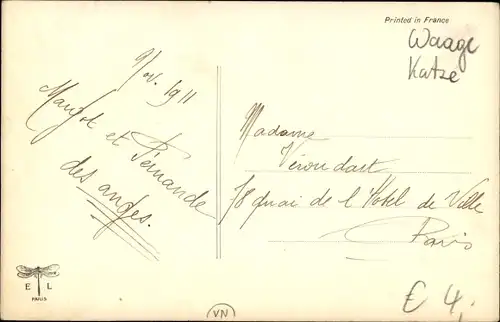 Printed in France
Waage
Katze
Nov. 1911
Margot et Fernande
des anges.
Madame
Verondart
78 quai de l'Hotel de Ville
Paris
E L
PARIS
VN
€ 4,-